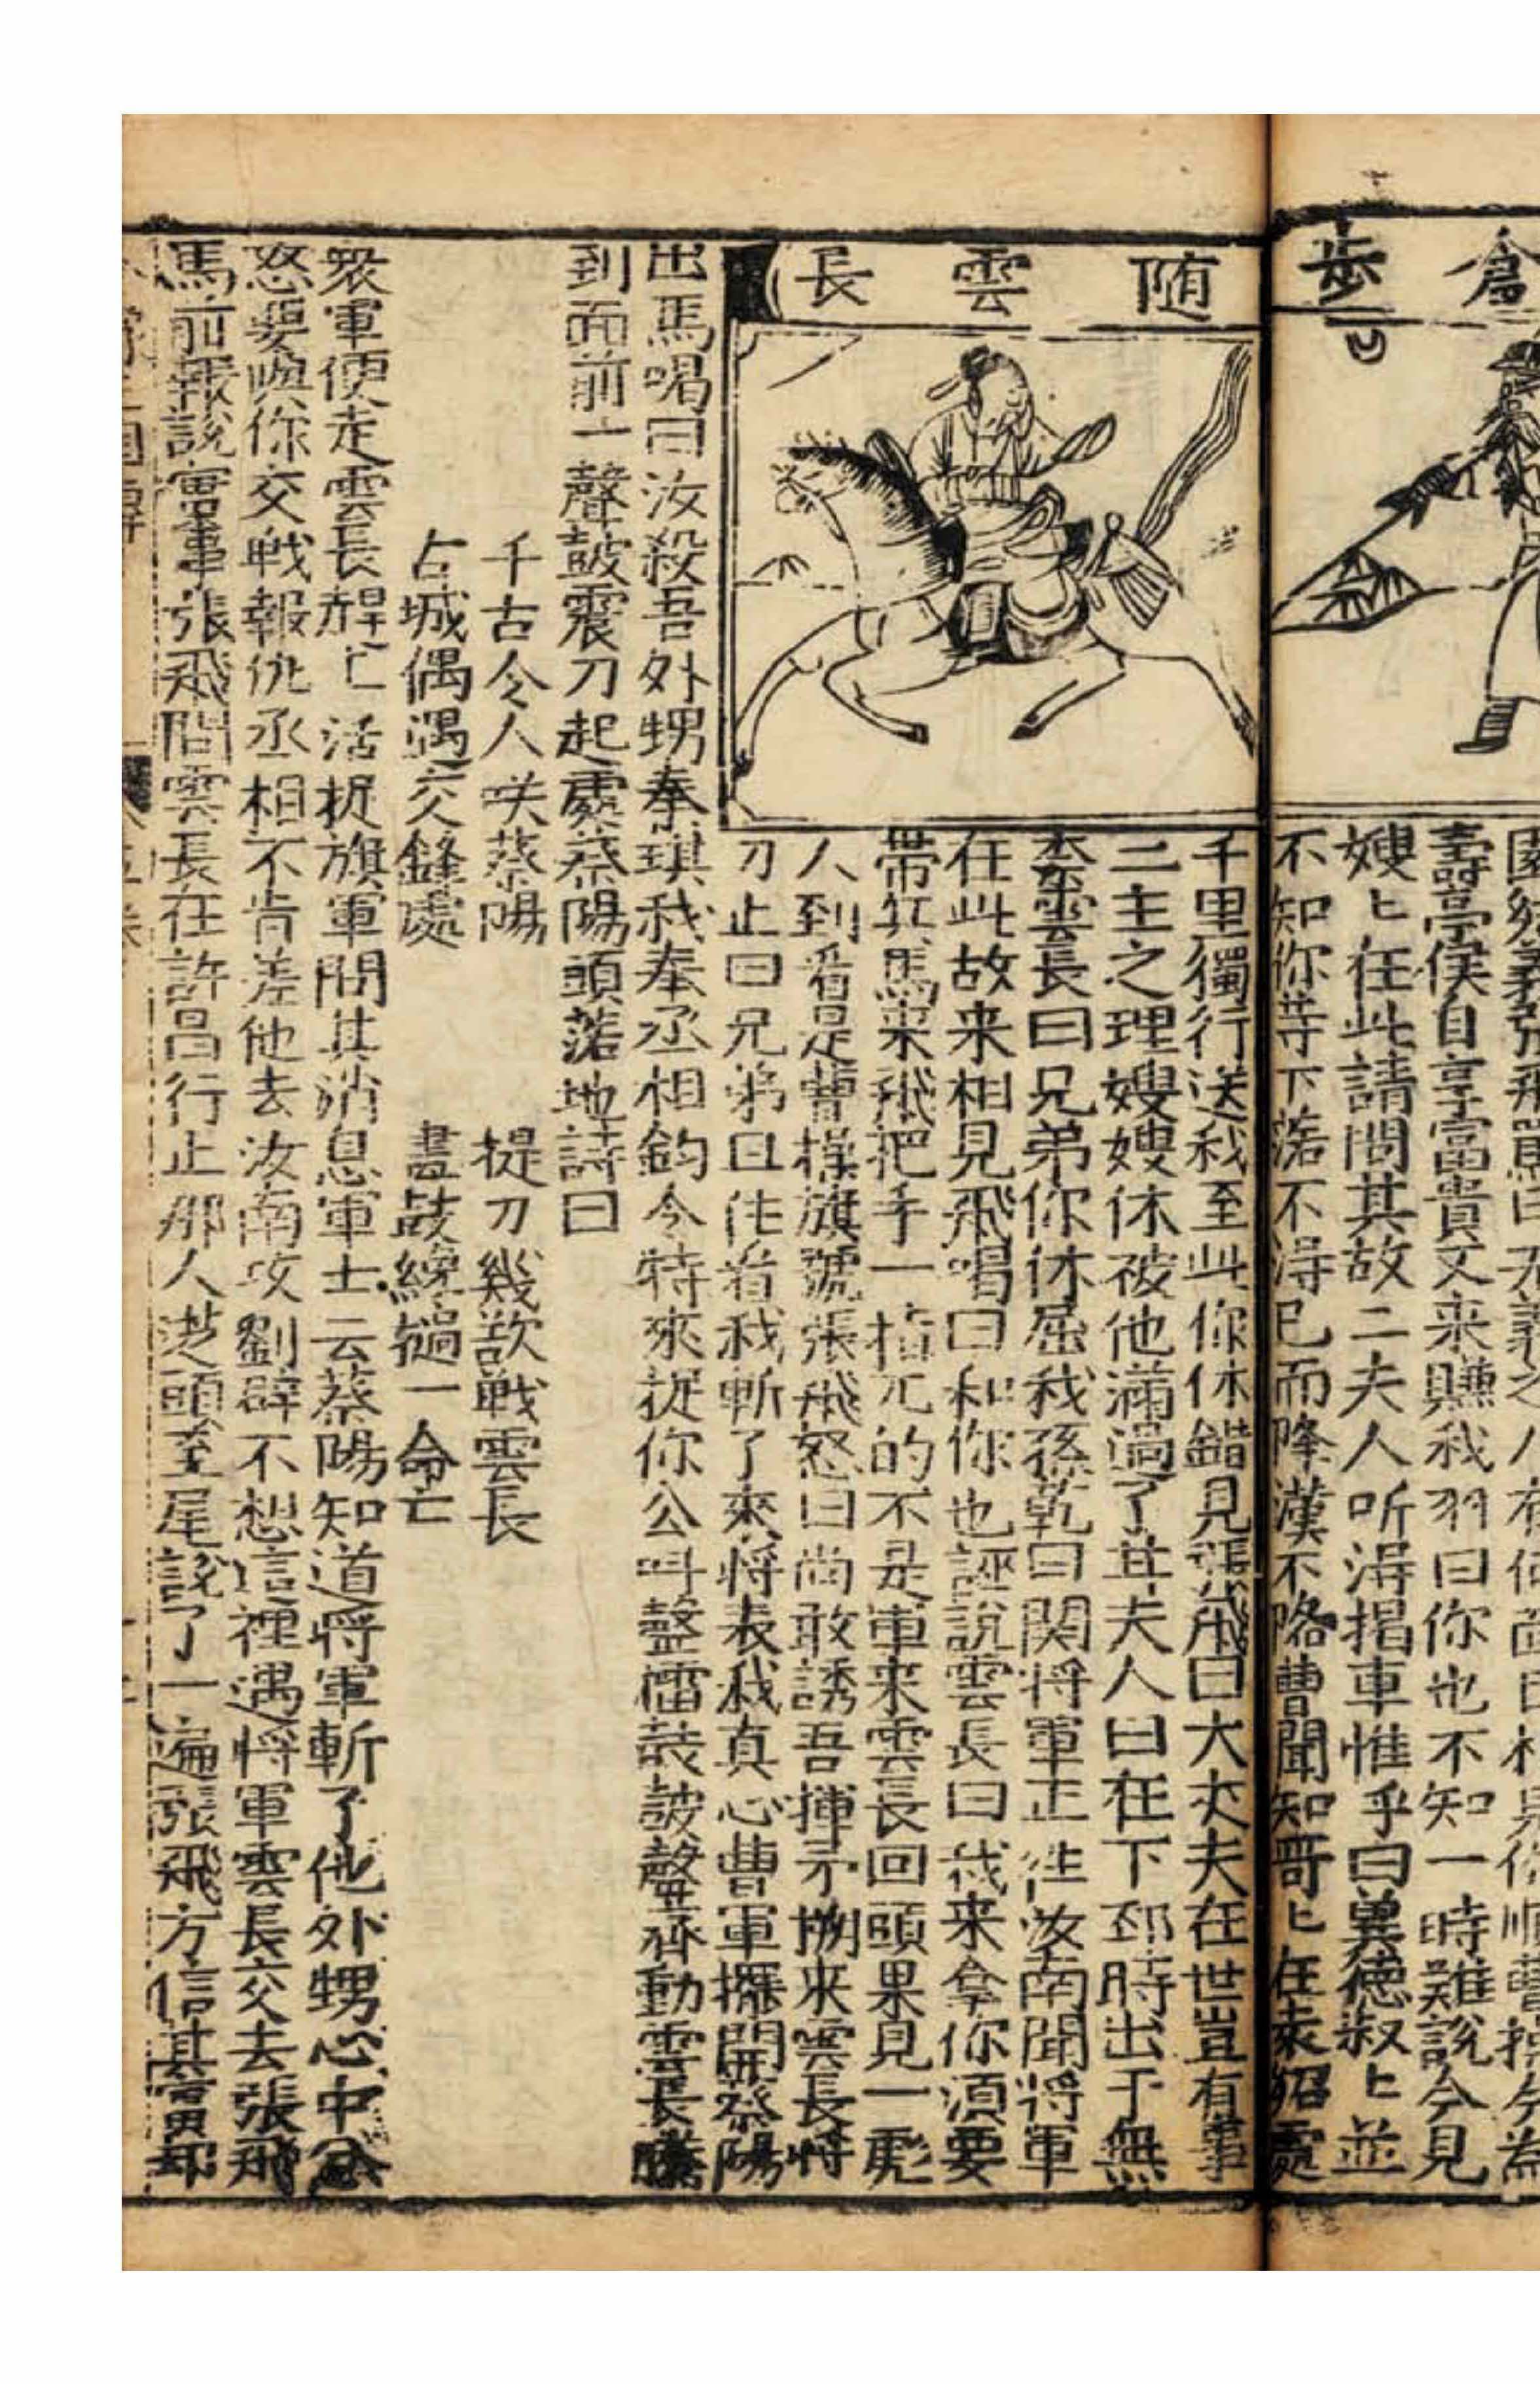 倉 步
壽亭侯自享富貴又来賺我羽曰你也不知一時難說今見
嫂〻在此請問其故二夫人听淂揭車惟乎曰異德叔〻並
不知你等下落不淂已而降漢不降曹聞知哥〻在袁紹處
随 雲 長
千里獨行送我至此你休錯見張飛曰大丈夫在世豈有事
二主之理嫂嫂休被他滿過了甘夫人曰在下邳時出于無
柰雲長曰兄弟你休屈我孫乾曰関将軍正往汝南聞将軍
在此故来相見飛喝曰和你也誣說雲長曰我来拿你須要
帶軍馬来飛把手一指兀的不是軍来雲長回頭果見一彪
人到看是曹操旗號張飛怒曰尚敢誘吾揮矛搠来雲長将
刀止曰兄弟且住看我斬了來将表我真心曹軍擺開蔡陽
出馬喝曰汝殺吾外甥秦琪我奉丞相鈞令特來捉你公叫聲擂鼓鼓聲齊動雲長驟
到面前一聲鼓震刀起處蔡陽頭落地詩曰
千古令人咲蔡陽 提刀幾欲戰雲長
古城偶遇交鋒處 畫鼓纔撾一命亡
衆軍便走雲長趕亡活捉旗軍問其消息軍士云蔡陽知道将軍斬了他外甥心中忿
怒要與你交戰報仇丞相不肯差他去汝南攻劉辟不想這裡遇將軍雲長交去張飛
馬前報說實事張飛問雲長在許昌行止那人從頭至尾說了一遍張飛方信其實却